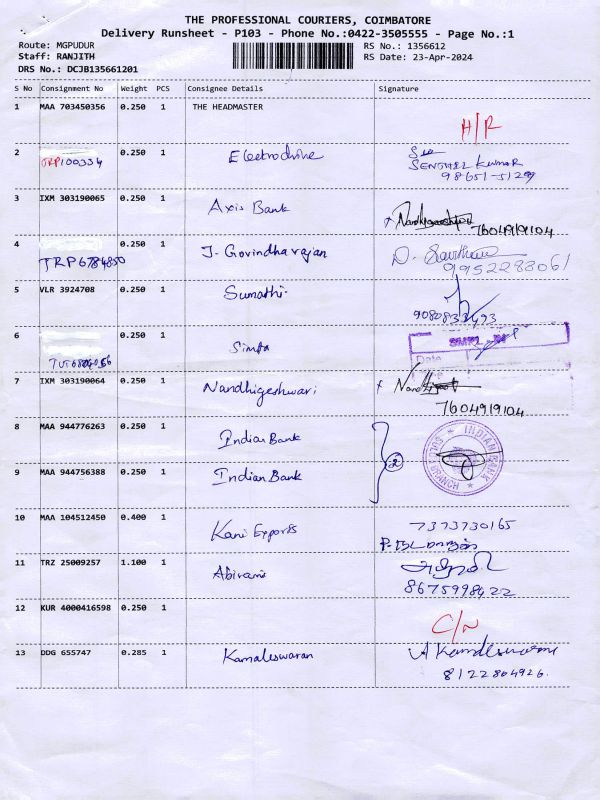 THE PROFESSIONAL COURIERS, COIMBATORE
Delivery Runsheet - P103 - Phone No.:0422-3505555 - Page No.:1
Route: MGPUDUR RS No.: 1356612
Staff: RANJITH RS Date: 23-Apr-2024
DRS No.: DCJB135661201
S No Consignment No Weight PCS Consignee Details Signature
1 MAA 703450356 0.250 1 THE HEADMASTER H/R
2 TRP100334 0.250 1 Electrodrive
SENTHIL Kumar
98651-51299
3 IXM 303190065 0.250 1 Axis Bank
7604919104
4 0.250 1 J. Govindharajan
TRP6784850
9952283061
5 VLR 3924708 0.250 1 Sumathi
9080833493
6 0.250 1 Simta SMRL
Date
7 IXM 303190064 0.250 1 Nandhigeshwari
7604919104
8 MAA 944776263 0.250 1 Indian Bank INDIAN BANK
BRANCH
2
9 MAA 944756388 0.250 1 Indian Bank
10 MAA 104512450 0.400 1 Kani Exports 7373730165
11 TRZ 25009257 1.100 1 Abirami
8675998422
12 KUR 4000416598 0.250 1 C/N
13 DDG 655747 0.285 1 Kamaleswaran A Kamaleswaran
8122804926.